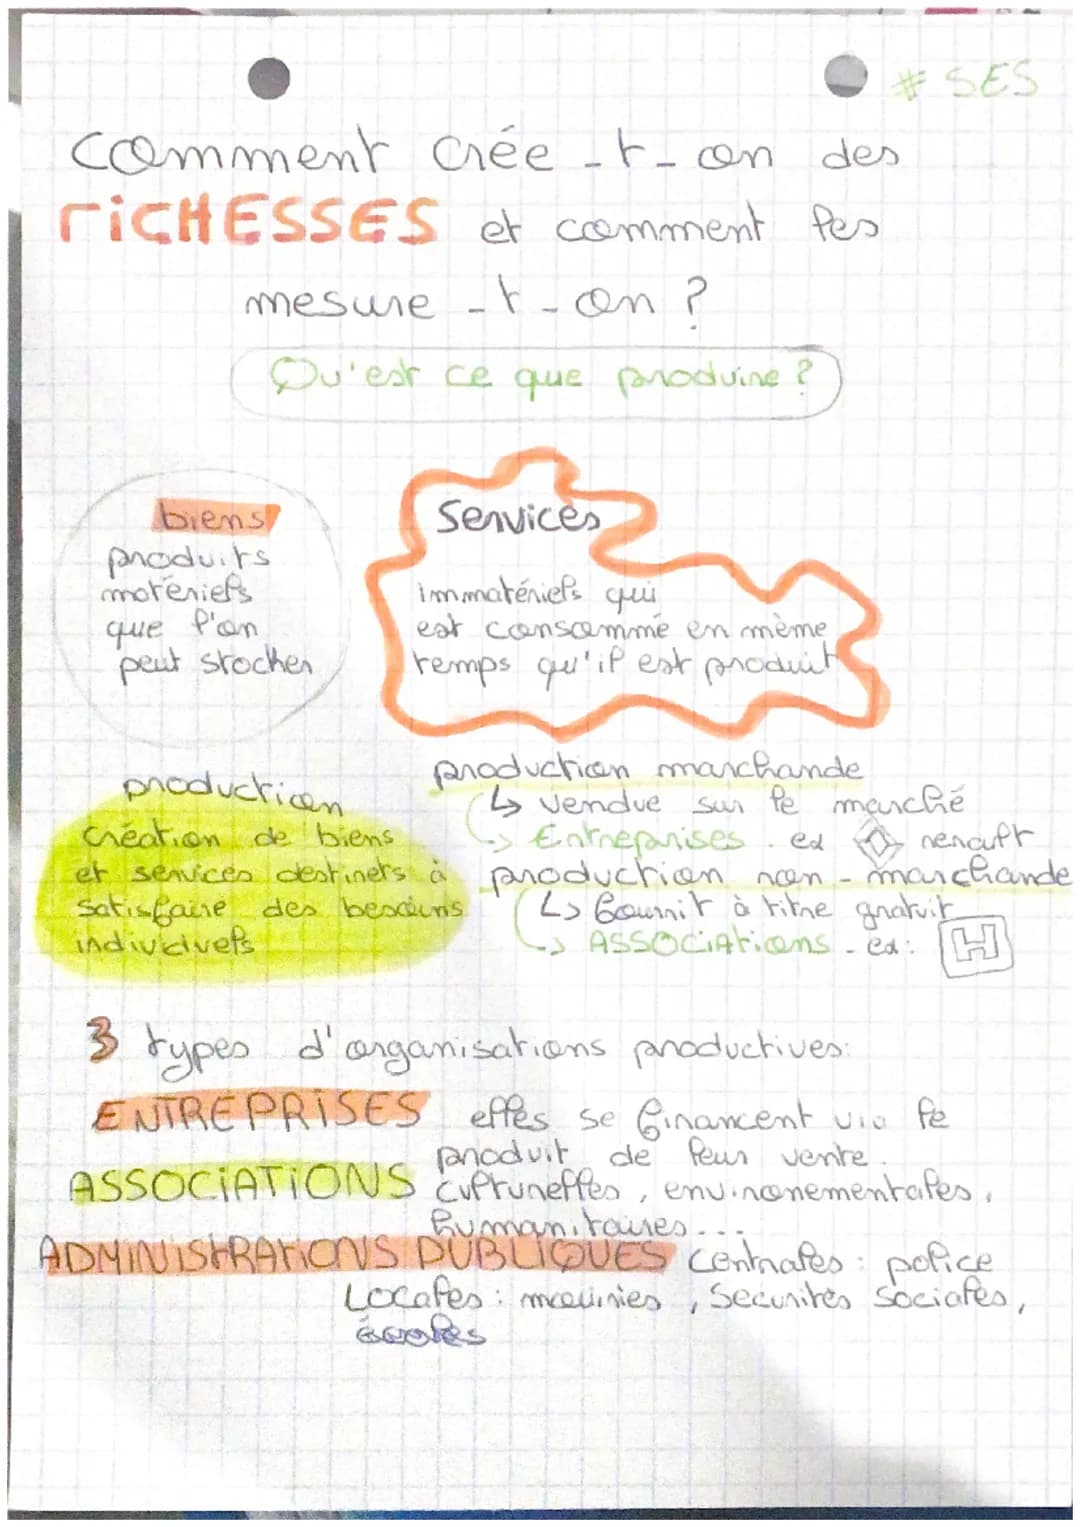 # SES
Comment crée-t-on des
RiCHESSES et comment les
mesure-t-on ?
Qu'est ce que produire ?
biens
produits
matériels
que l'on
peut stocker
Services
immatériels qui
est consommé en même
temps qu'il est produit
production
création de biens
et services destinets à
satisfaire des besoins
individuels
production marchande
↳ vendue sur le marché
→ Entreprises. ex renault
production non-marchande
↳ fournit à titre gratuit
→ ASSOCiATions. ex: H
3 types d'organisations productives:
ENTREPRiSES elles se financent via le
produit de leur vente.
ASSOCiATiONS culturelles, environementales,
humanitaires...
ADMiNiStRATiONS PUBLiQUES Centrales : police
Locales : mairies, Securités Sociales,
écoles